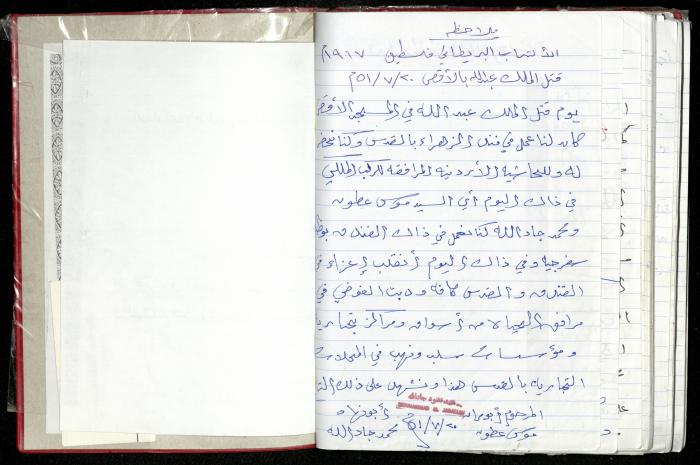 ملاحظه
الأنتداب البريطاني فلسطين ١٩١٧م
قتل الملك عبدالله بالأقصى ٥١/٧/٢٠م
يوم قتل الملك عبد الله في المسجد الأقصى
كان لنا عمل في فندق الزهراء بالقدس وكنا نحضر
له وللحاشية الأردنيه المرافقه للركب الملكي
في ذاك اليوم أي السيد موسى عطون
ومحمد جاد الله كنا نعمل في ذاك الفندق
سفرجيه وفي ذاك اليوم أنقلب
الفندق والقدس كافه ودبت الفوضى في
مرافق الحياة من أسواق ومراكز تجاريه
ومؤسسات سلب ونهب في المحلات
التجاريه بالقدس هذا ونشهد على ذلك
المرحوم أبو أبونهاد
موسى عطون ٥١/٧/٢٠م محمد جادالله